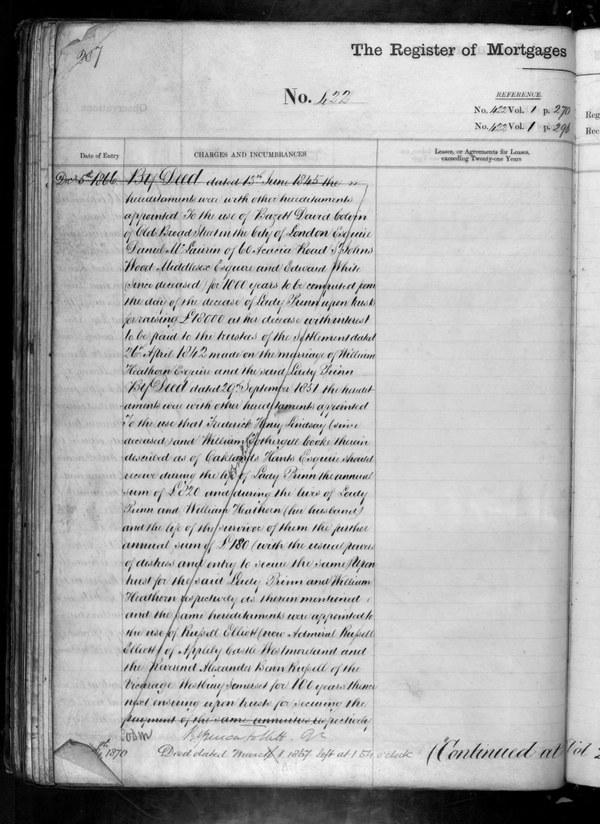 267
The Register of Mortgages
No. 422
REFERENCE.
No. 422 Vol. 1 p. 270
No. 422 Vol. 1 p. 296
Reg
Rec
Date of Entry
CHARGES AND INCUMBRANCES
Leases, or Agreements for Leases,
exceeding Twenty-one Years
Decr 5th 1866 By Deed dated 13th June 1845 the
hereditaments were with other hereditaments
appointed To the use of Bazett David Colvin
of Old Broad Street in the City of London Esquire
Daniel McLaurin of 60 Acacia Road St Johns
Wood Middlesex Esquire and Edward White
(since deceased) for 1000 years to be computed from
the day of the decease of Lady Prinn upon trust
for raising £18000 at her decease with interest
to be paid to the trustees of the settlement dated
26th April 1842 made on the marriage of William
Heathorn Esquire and the said Lady Prinn
By Deed dated 29th September 1851 the heredit-
aments were with other hereditaments appointed
To the use that Frederick Henry Lindsay (since
deceased) and William Fothergill Cooke therein
described as of Oaklands Hants Esquire should
receive during the life of Lady Prinn the annual
sum of £220 and during the lives of Lady
Prinn and William Heathorn (her husband)
and the life of the survivor of them the further
annual sum of £180 (with the usual powers
of distress and entry to secure the same) Upon
trust for the said Lady Prinn and William
Heathorn respectively as therein mentioned
and the same hereditaments were appointed to
the use of Russell Elliott (now Admiral Russell
Elliott) of Appleby Castle Westmoreland and
the Reverend Alexander Benn Russell of the
Vicarage Westbury Somerset for 100 years thence
next ensuing upon trusts for securing the
payment of the same annuities respectively
1870
Deed dated March 1 1867 left at 1 54 o'clock
(Continued at Vol 2